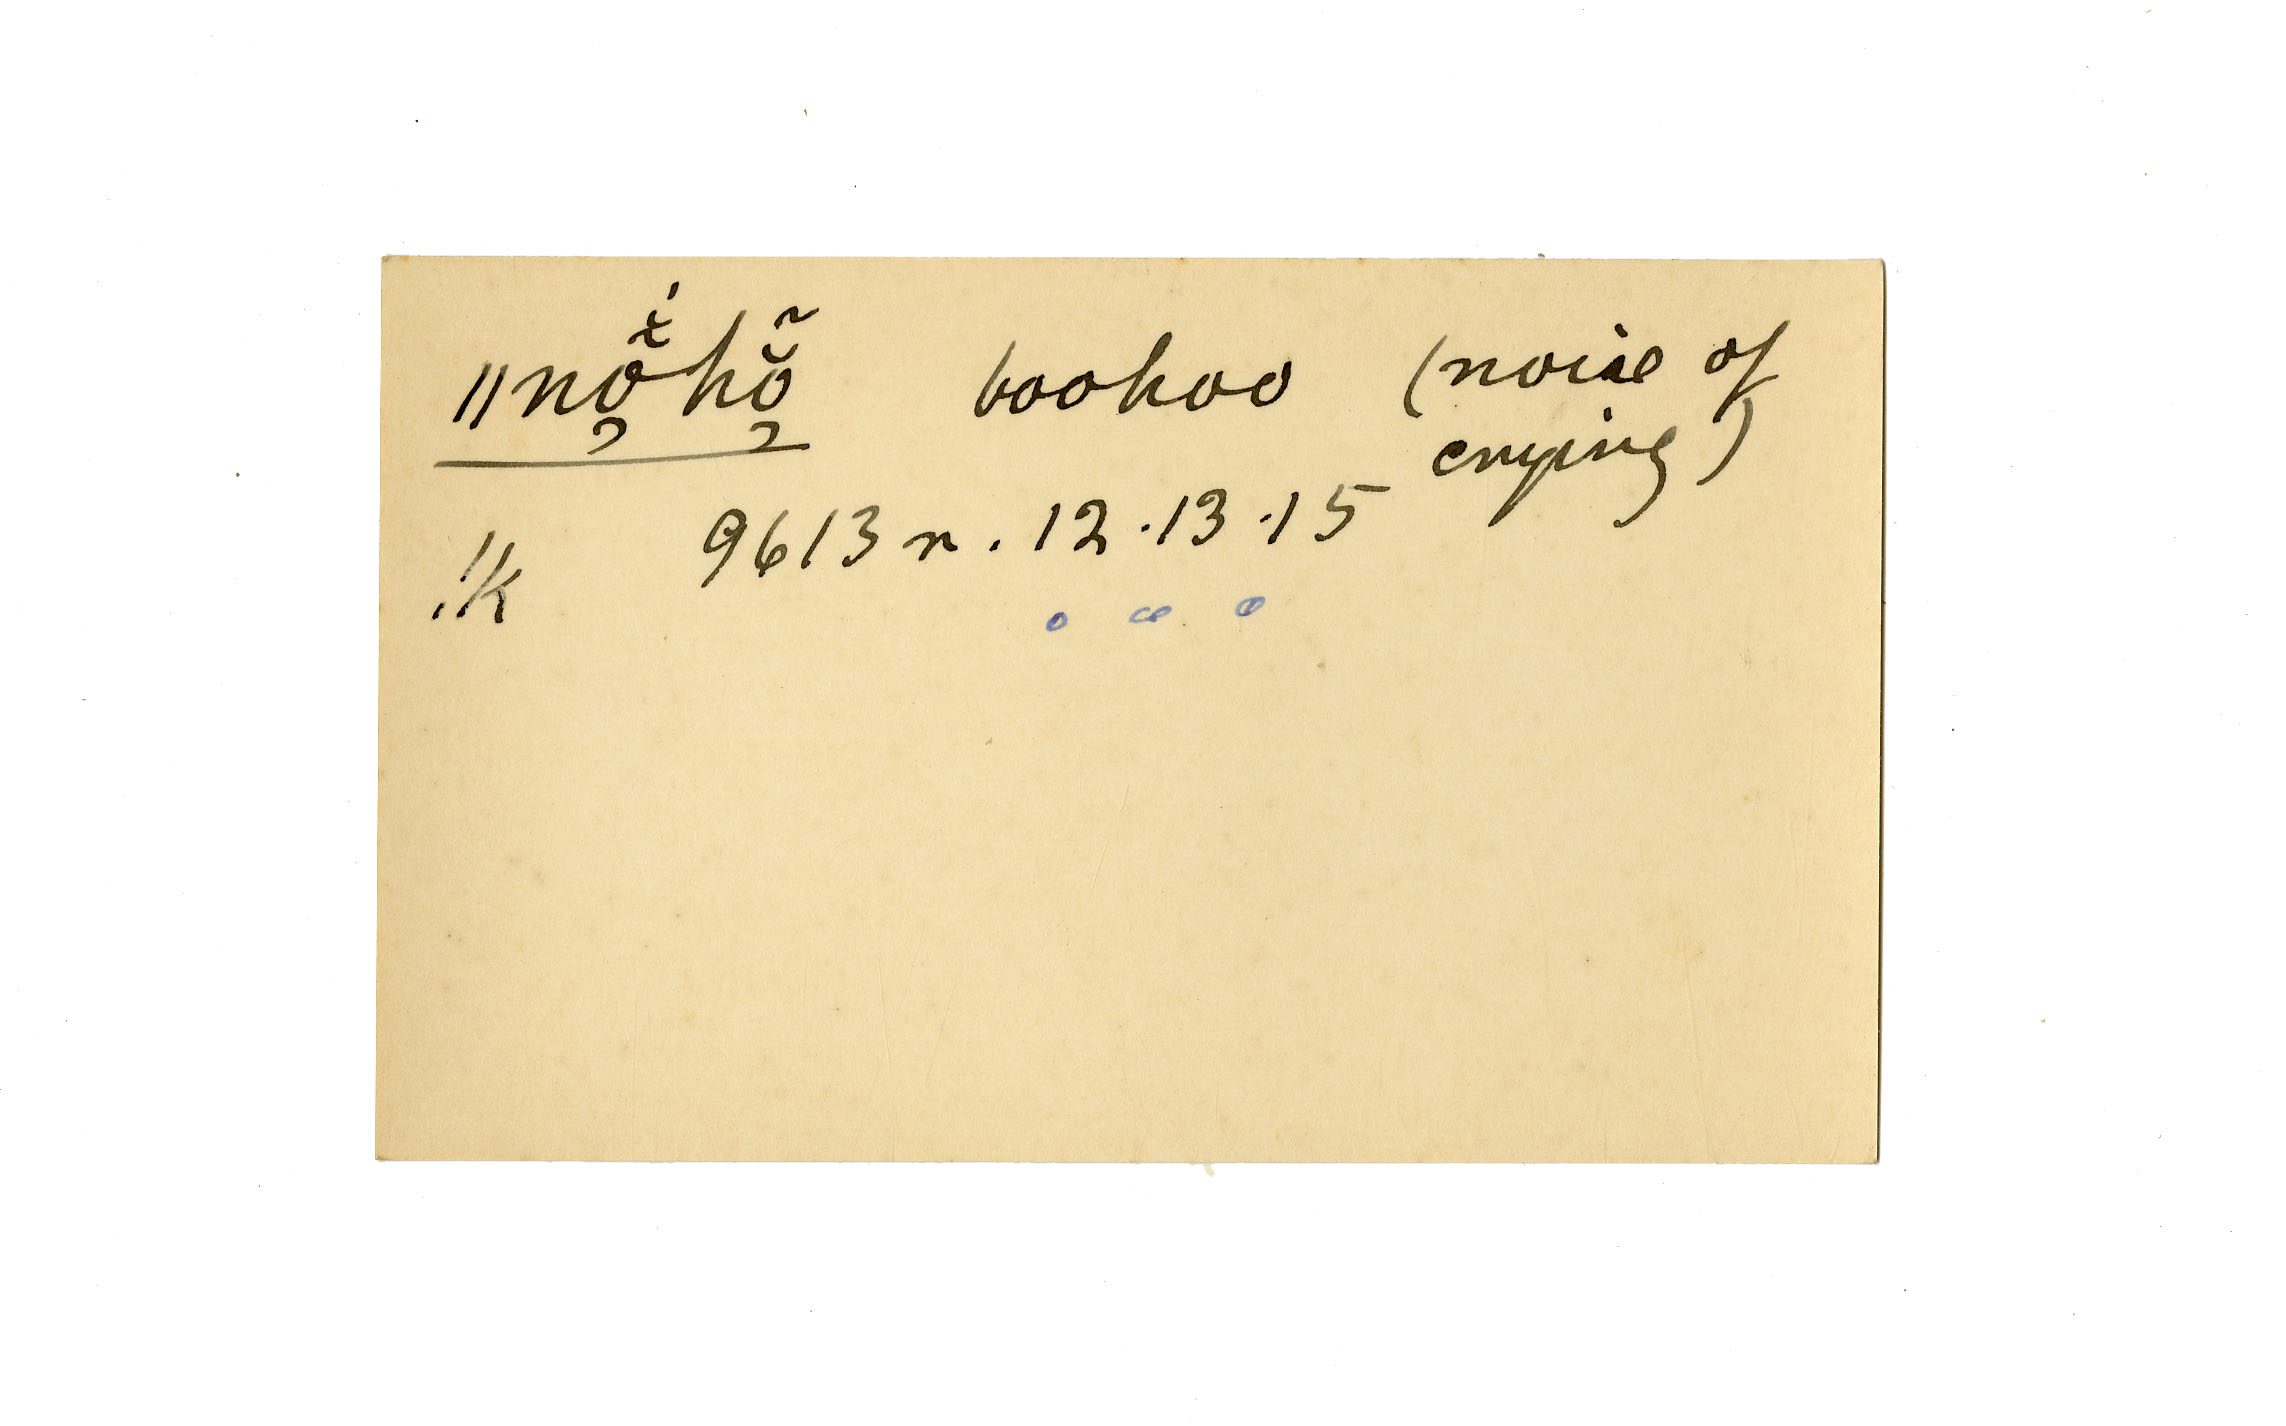 ǁnɔ̯̃̆́hɔ̯̃̆ boohoo (noise of
crying)
!k 9613 r. 12.13.15